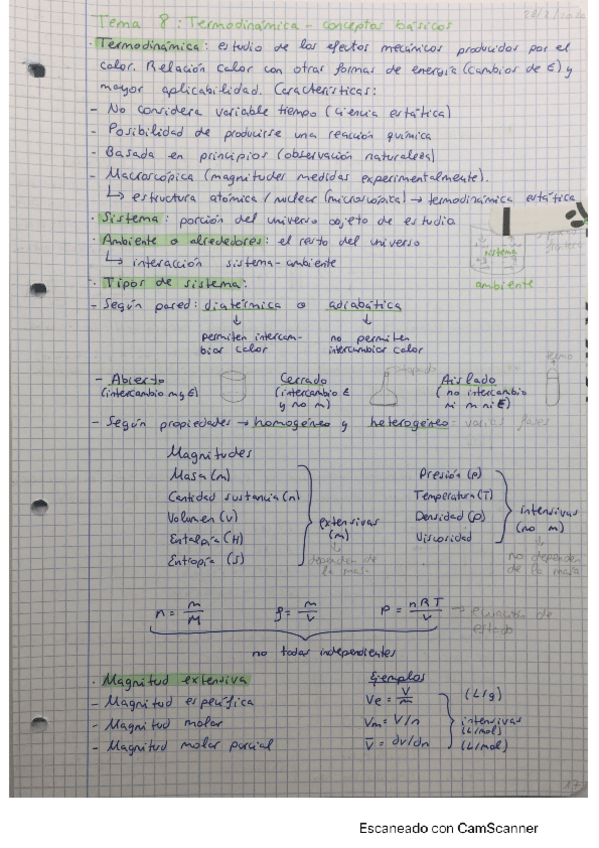 Tema 8: Termodinámica - conceptos básicos
· Termodinámica: estudio de los efectos mecánicos producidos por el
calor. Relación calor con otras formas de energía (cambios de E) y
mayor aplicabilidad. Características:
- No considera variable tiempo (ciencia estática)
- Posibilidad de producirse una reacción química
- Basada en principios (observación naturaleza)
- Macroscópica (magnitudes medidas experimentalmente).
↳ estructura atómica / nuclear (microscópica) → termodinámica estática
· Sistema: porción del universo objeto de estudio
· Ambiente o alrededores: el resto del universo
sistema
↳ interacción sistema-ambiente
ambiente
· Tipos de sistema:
- Según pared: diatérmica o adiabática
↓ ↓
permiten intercam- no permiten
biar calor intercambiar calor
- Abierto Cerrado Aislado
(intercambio m y E) (intercambio E (no intercambio
y no m) ni m ni E)
tapado
termo
- Según propiedades → homogéneo y heterogéneo = varias fases
Magnitudes
Masa (m) Presión (p)
Cantidad sustancia (n) Temperatura (T)
Volumen (V) extensivas Densidad (ρ) intensivas
Entalpía (H) (m) Viscosidad (no m)
Entropía (S) dependen de no dependen
la masa de la masa
n = m/M ρ = m/V P = nRT/V → ecuación de
estado
no todas independientes
· Magnitud extensiva Ejemplos
- Magnitud específica Ve = V/m (L/g)
- Magnitud molar Vm = V/n intensivas
(L/mol)
- Magnitud molar parcial V̄ = ∂V/∂n (L/mol)
17
Escaneado con CamScanner